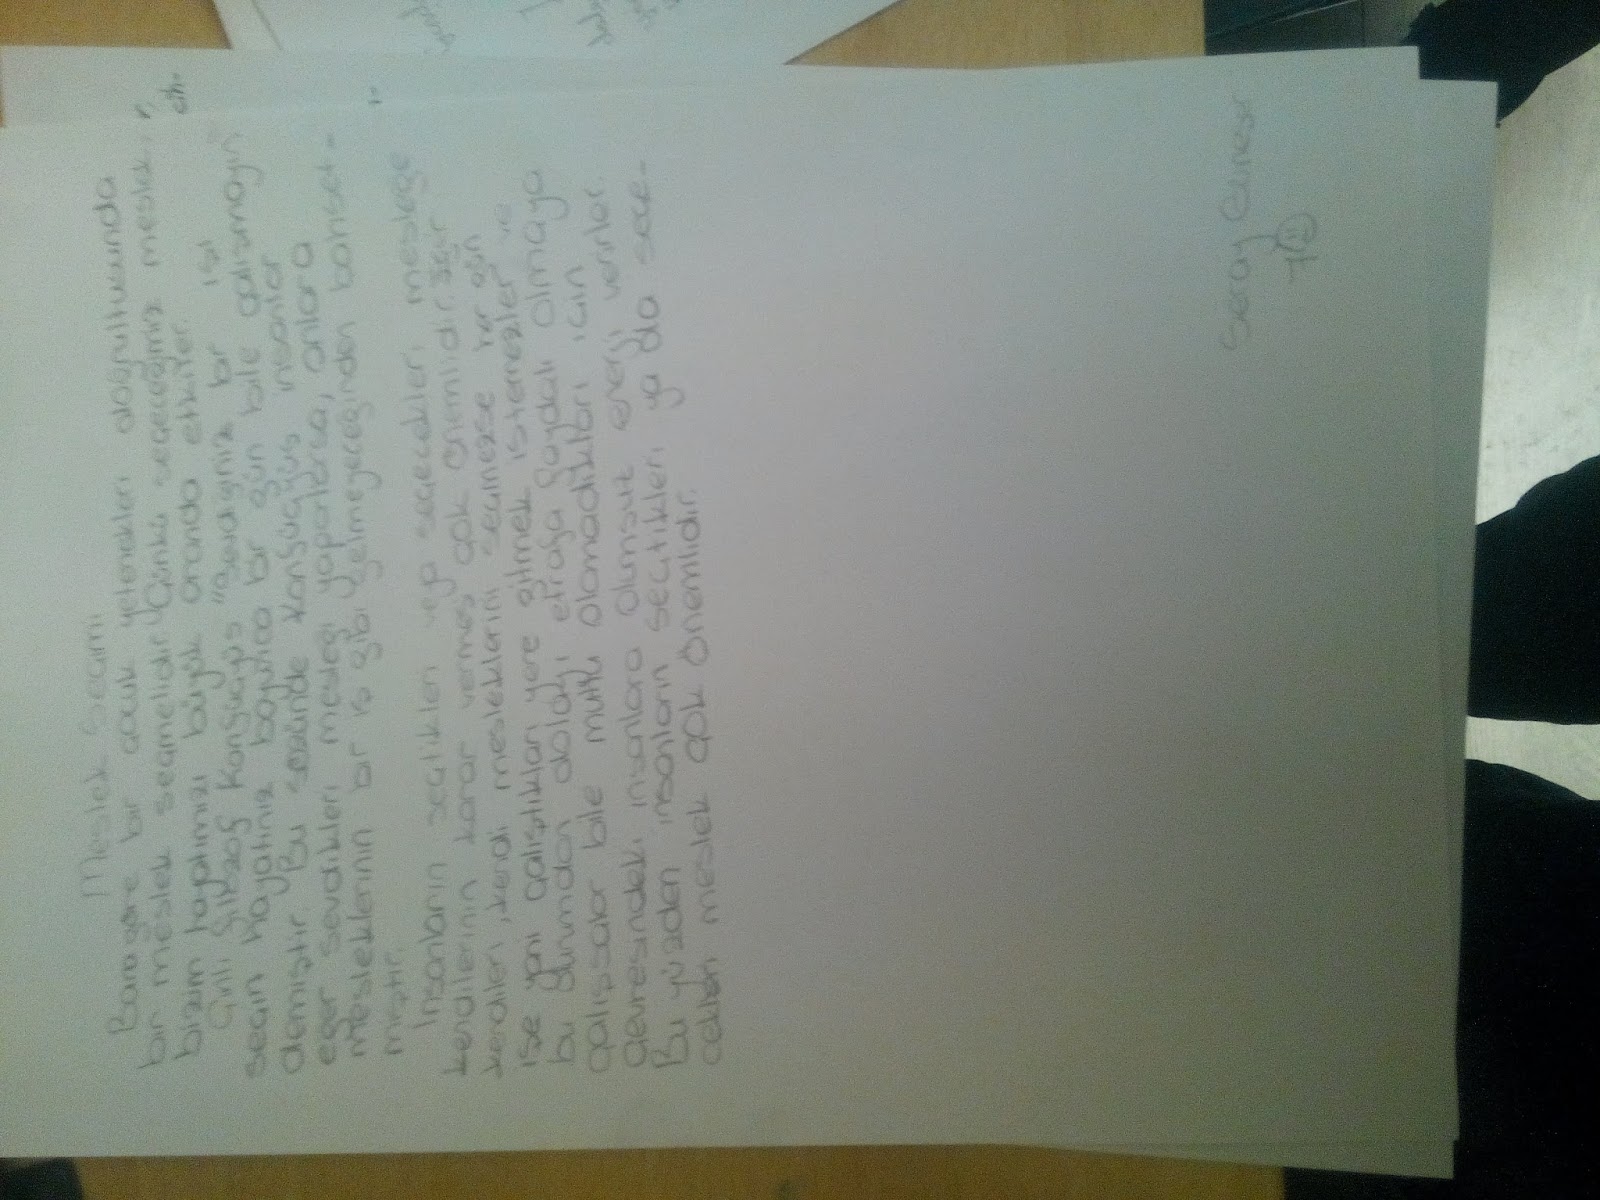 Meslek Seçimi
Bana göre bir çocuk yetenekleri doğrultusunda
bir meslek seçmelidir. Çünkü seçeceğimiz meslek,
bizim hayatımızı büyük oranda etkiler.
Çinli filozof Konfüçyüs "Sevdiğiniz bir işi
seçin hayatınız boyunca bir gün bile çalışmayın"
demiştir. Bu sözünde Konfüçyüs insanlar
eğer sevdikleri mesleği yaparlarsa, onlara
mesleklerinin bir iş gibi gelmeyeceğinden bahset-
miştir.
İnsanların seçtikleri veya seçecekleri mesleğe
kendilerinin karar vermesi çok önemlidir. Eğer
kendileri, kendi mesleklerini seçmezse her gün
ise yani çalıştıkları yere gitmek istemezler ve
bu durumdan dolayı etrafa faydalı olmaya
çalışsalar bile mutlu olamadıkları için
çevresindeki insanlara olumsuz enerji verirler.
Bu yüzden insanların seçtikleri ya da seçe-
cekleri meslek çok önemlidir.
Seray
7